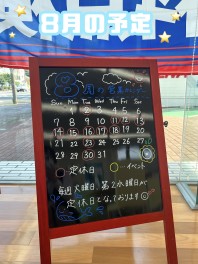 8月の予定
8月の営業カレンダー
Sun Mon Tue Wed Thu Fri Sat
1 2 3 4 5 6
7 8 9 10 11 12 13
14 15 16 17 18 19 20
21 22 23 24 25 26 27
28 29 30 31
定休日
イベント
毎週火曜日、第2水曜日が
定休日となっております